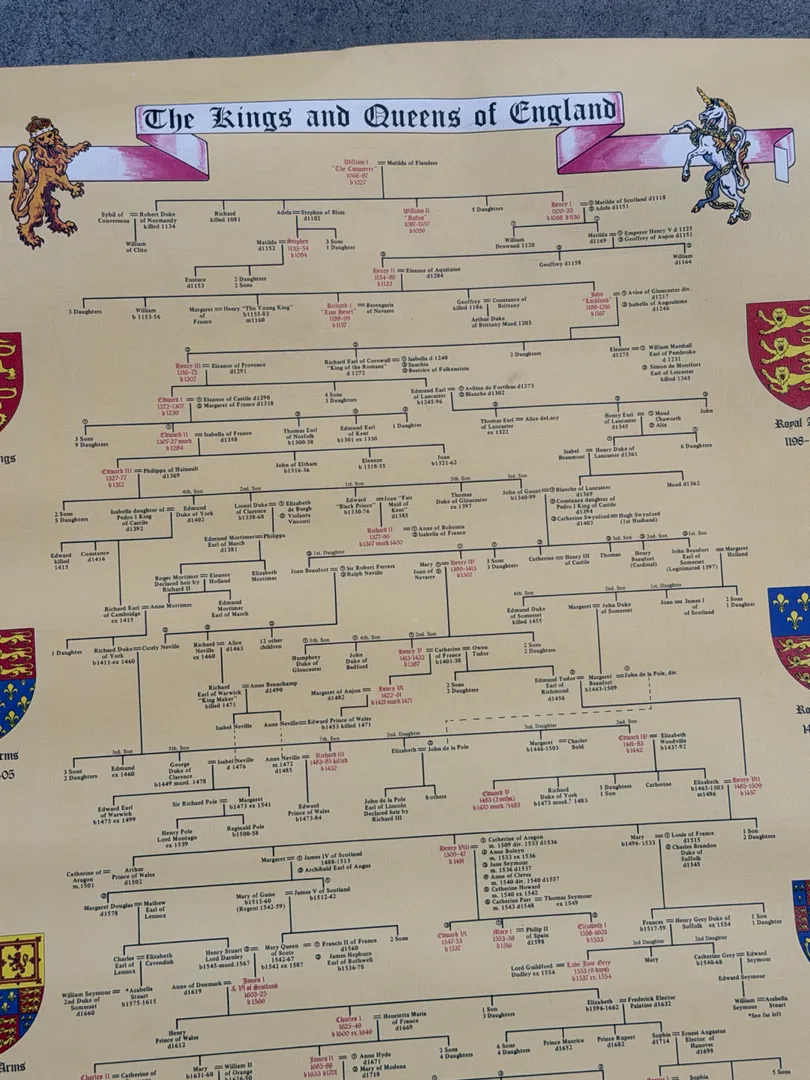 The Kings and Queens of England
William I = Matilda of Flanders
"The Conqueror"
1066-87
b1027
Sybil of = Robert Duke
Conversana of Normandy
killed 1134
Richard
killed 1081
Adela = Stephen of Blois
d1102
William II
"Rufus"
1087-1100
b1059
5 Daughters
Henry I = ① Matilda of Scotland d1118
1100-35 ② Adela d1151
b1068 d1136
William
of Clito
Matilda = Stephen
d1152 1135-54
b1094
3 Sons
1 Daughter
William
Drowned 1120
Matilda = ① Emperor Henry V d 1125
d1169 ② Geoffrey of Anjou d1151
Eustace
d1153
2 Daughters
2 Sons
Henry II = Eleanor of Aquitaine
1154-89 d1204
b1133
Geoffrey d1158
William
d1164
3 Daughters
William
b 1153-56
Margaret = Henry "The Young King"
of b1155-83
France m1160
Richard I = Berengaria
"Lion Heart" of Navarre
1189-99
b1157
Geoffrey = Constance of
killed 1186 Brittany
Arthur Duke
of Brittany Murd.1203
John = ① Avice of Gloucester div.
"Lackland" d1217
1199-1216 ② Isabella of Angouleme
b1167 d1246
Henry III = Eleanor of Provence
1216-72 d1291
b1207
Richard Earl of Cornwall = ① Isabella d 1240
"King of the Romans" ② Sanchia
d 1272 ③ Beatrice of Falkenstein
2 Daughters
Eleanor = ① William Marshall
d1275 Earl of Pembroke
d 1231
② Simon de Montfort
Earl of Leicester
killed 1265
Edward I = ① Eleanor of Castile d1290
1272-1307 ② Margaret of France d1318
b1239
4 Sons
3 Daughters
Edmund Earl = ① Aveline de Fortibus d1273
of Lancaster ② Blanche d1302
b1245-96
3 Sons
9 Daughters
Edward II = Isabella of France
1307-27 murd. d1358
b1284
Thomas Earl
of Norfolk
b1300-38
Edmund Earl
of Kent
b1301 ex 1330
1 Daughter
Thomas Earl = Alice deLacy
of Lancaster
ex 1322
Henry Earl = ① Maud
of Lancaster Chaworth
d1345 ② Alix
John
Edward III = Philippa of Hainault
1327-77 d1369
b1312
John of Eltham
b1316-36
Eleanor
b 1318-55
Joan
b1321-62
Isabel = Henry Duke of
Beaumont Lancaster d1361
6 Daughters
2 Sons
5 Daughters
4th. Son
Isabella daughter of = Edmund
Pedro I King Duke of York
of Castile d1402
d1392
2nd. Son
Lionel Duke = ① Elizabeth
of Clarence de Burgh
b1338-68 ② Violante
Visconti
1st. Son
Edward = Joan "Fair
"Black Prince" Maid of
b1330-76 Kent"
d1385
5th. Son
Thomas
Duke of Gloucester
ex 1397
3rd. Son
John of Gaunt = ① Blanche of Lancaster
b1340-99 d1369
② Constance daughter of
Pedro I King of Castile
d1394
③ Catherine Swynford = Hugh Swynford
d1403 (1st Husband)
Maud d1362
Edward
killed
1415
Constance
d1416
Edmund Mortimer = Philippa
Earl of March
d1381
Richard II = ① Anne of Bohemia
1377-99 ② Isabella of France
b1367 murd.1400
Roger Mortimer = Eleanor
Declared heir by Holland
Richard II
Elizabeth
Mortimer
1st. Daughter
Joan Beaufort = ① Sir Robert Ferrers
② Ralph Neville
Mary = Henry IV
Joan of 1399-1413
Navarre b1367
3 Sons
3 Daughters
Catherine = Henry III
of Castile
Thomas
3rd. Son
2nd. Son
Henry
Beaufort
(Cardinal)
1st. Son
John Beaufort = Margaret
Earl of Holland
Somerset
(Legitimated 1397)
Richard Earl = Anne Mortimer
of Cambridge
ex 1415
Edmund
Mortimer
Earl of March
4th. Son
Edmund Duke
of Somerset
killed 1455
2nd. Son
Margaret = John Duke
of Somerset
1st. Daughter
Joan = James I
of Scotland
2 Sons
1 Daughter
1 Daughter
Richard Duke = Cicely Neville
of York
b1411-ex 1460
Richard = Alice
ex 1460 d1463
12 other
children
5th Son
Humphrey
Duke of
Gloucester
4th. Son
John
Duke of
Bedford
2nd Son
Henry V = Catherine = Owen
1413-1422 of France Tudor
b1387 b1401-38
2 Sons
2 Daughters
Richard = Anne Beauchamp
Earl of Warwick d1490
"King Maker"
killed 1471
Margaret of Anjou = Henry VI
d1482 1422-61
b1421 murd.1471
2 Sons
2 Daughters
Edmund Tudor = Margaret = John de la Pole, div.
Earl of Beaufort
Richmond b1443-1509
d1456
Isabel Neville
Anne Neville = Edward Prince of Wales
b1453 killed 1471
3 Sons
2 Daughters
3rd. Son
Edmund
ex 1460
5th. Son
George = Isabel Neville
Duke of d 1476
Clarence
b1449 murd. 1478
7th. Son
Anne Neville = Richard III
m.1472 1483-85 killed
d1485 b1452
2nd. Daughter
Elizabeth = John de la Pole
3rd. Daughter
Margaret = Charles
b1446-1503 Bold
2nd. Son
Edward IV = Elizabeth
1461-83 Woodville
b1442 b1437-92
Edward Earl
of Warwick
b1475 ex 1499
Sir Richard Pole = Margaret
b1473 ex 1541
Edward
Prince of Wales
b1473-84
John de la Pole
Earl of Lincoln
Declared heir by
Richard III
8others
Edward V
1483 (3 mths)
b1470 murd.?1483
Richard
Duke of York
b1473 murd.? 1483
5 Daughters
1 Son
Catherine
Elizabeth = Henry VII
b1465-1503 1485-1509
m1486 b1457
Henry Pole
Lord Montagu
ex 1539
Reginald Pole
b1500-58
Catherine of = Arthur
Aragon Prince of Wales
m.1501 d1502
Margaret = ① James IV of Scotland
1488-1513
② Archibald Earl of Angus
Henry VIII = ① Catherine of Aragon
1509-47 m. 1509 div. 1533 d1536
b 1491 ② Anne Boleyn
m. 1533 ex 1536
③ Jane Seymour
m. 1536 d1537
④ Anne of Cleves
m. 1540 div. 1540 d1557
⑤ Catherine Howard
m. 1540 ex 1542
⑥ Catherine Parr = Thomas Seymour
m. 1543 d1548 ex 1549
Mary = ① Louis of France
b1496-1533 d1515
② Charles Brandon
Duke of
Suffolk
d1545
1 Son
2 Daughters
Margaret Douglas = Mathew
d1578 Earl of
Lennox
Mary of Guise = James V of Scotland
b1515-60 b1512-42
(Regent 1542-59)
Charles = Elizabeth
Earl of Cavendish
Lennox
Henry Stuart = Mary Queen = ① Francis II of France
Lord Darnley of Scots d1560
b1545-murd.1567 1542-67 ② James Hepburn
b1542 ex 1587 Earl of Bothwell
b1536-78
2 Sons
Edward VI
1547-53
b1537
Mary I = Philip II
1553-58 of Spain
b1516 d1598
Elizabeth I
1558-1603
b1533
Frances = Henry Grey Duke of
b1517-59 Suffolk ex 1554
1 Son
1 Daughter
Lord Guildford = Lady Jane Grey
Dudley ex 1554 1553 (9 days)
b1537 ex. 1554
3rd Daughter
Mary
2nd Daughter
Catherine Grey = Edward
b1540-68 Seymour
Edward Seymour
William Seymour = *Arabella
2nd Duke of Stuart
Somerset b1575-1615
d1660
Anne of Denmark = James I
d1619 & VI of Scotland
1603-25
b1566
William = Arabella
Seymour Stuart
*See far left
Henry
Prince of Wales
d1612
Charles I = Henrietta Maria
1625-49 of France
b 1600 ex.1649 d1669
1 Son
3 Daughters
Elizabeth = Frederick Elector
b1596-1662 Palatine d1632
Charles II = Catherine of
Mary = William II
b1631-60 of Orange
James II = ① Anne Hyde
1685-88 d1671
b1633 d1701 ② Mary of Modena
d1718
2 Sons
4 Daughters
6 Sons
4 Daughters
Prince Maurice
d1652
Prince Rupert
d1682
Sophia = Ernest Augustus
d1714 Elector of
Hanover
d1698
Sophia
5 Sons
Royal A
1198-
ngs
rms
405
Arms
Ro